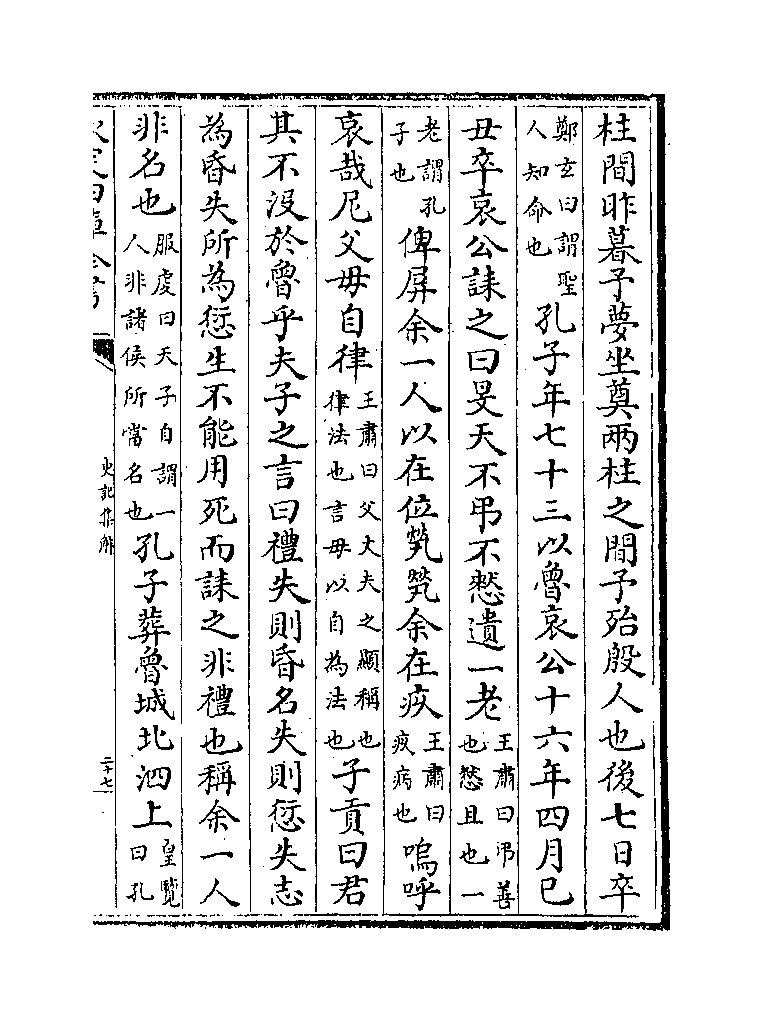 柱間昨暮予夢坐奠兩柱之間予殆殷人也後七日卒
鄭玄曰謂聖
人知命也
孔子年七十三以魯哀公十六年四月已
丑卒哀公誄之曰旻天不弔不憗遺一老
王肅曰弔善
也憗且也一
老謂孔
子也
俾屏余一人以在位煢煢余在疚
王肅曰
疚病也
嗚呼
哀哉尼父毋自律
王肅曰父丈夫之顯稱也
律法也言毋以自為法也
子貢曰君
其不沒於魯乎夫子之言曰禮失則昏名失則愆失志
為昏失所為愆生不能用死而誄之非禮也稱余一人
非名也
服虔曰天子自謂一
人非諸侯所當名也
孔子葬魯城北泗上
皇覽
曰孔
史記集解
二十七